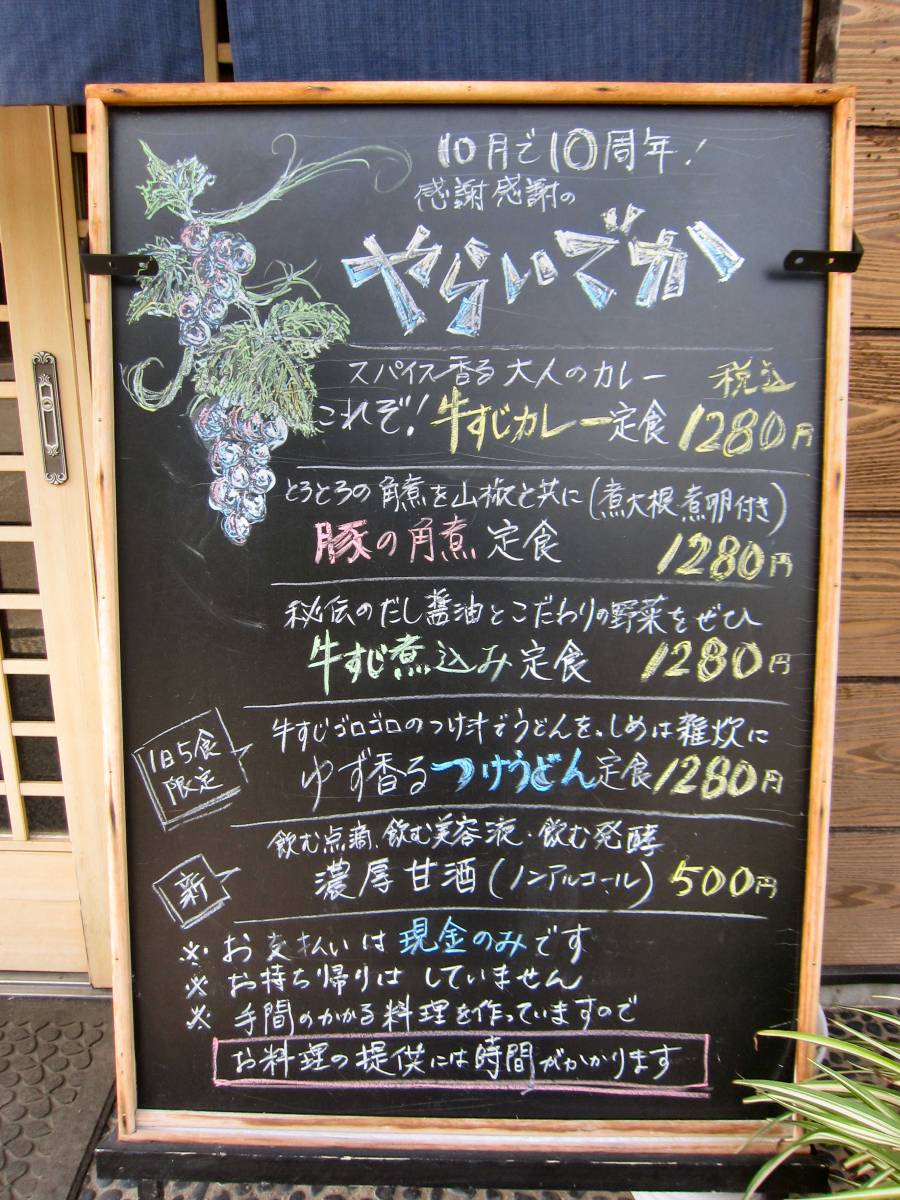 10月で10周年!
感謝感謝の
やらいでか
スパイス香る大人のカレー 税込
これぞ!牛すじカレー定食 1280円
とろとろの角煮を山椒と共に(煮大根煮卵付き)
豚の角煮定食 1280円
秘伝のだし醤油とこだわりの野菜をぜひ
牛すじ煮込み定食 1280円
1日5食
限定
牛すじゴロゴロのつけ汁でうどんを、しめは雑炊に
ゆず香るつけうどん定食1280円
新
飲む点滴、飲む美容液・飲む発酵
濃厚甘酒(ノンアルコール) 500円
※お支払いは現金のみです
※お持ち帰りはしていません
※手間のかかる料理を作っていますので
お料理の提供には時間がかかります